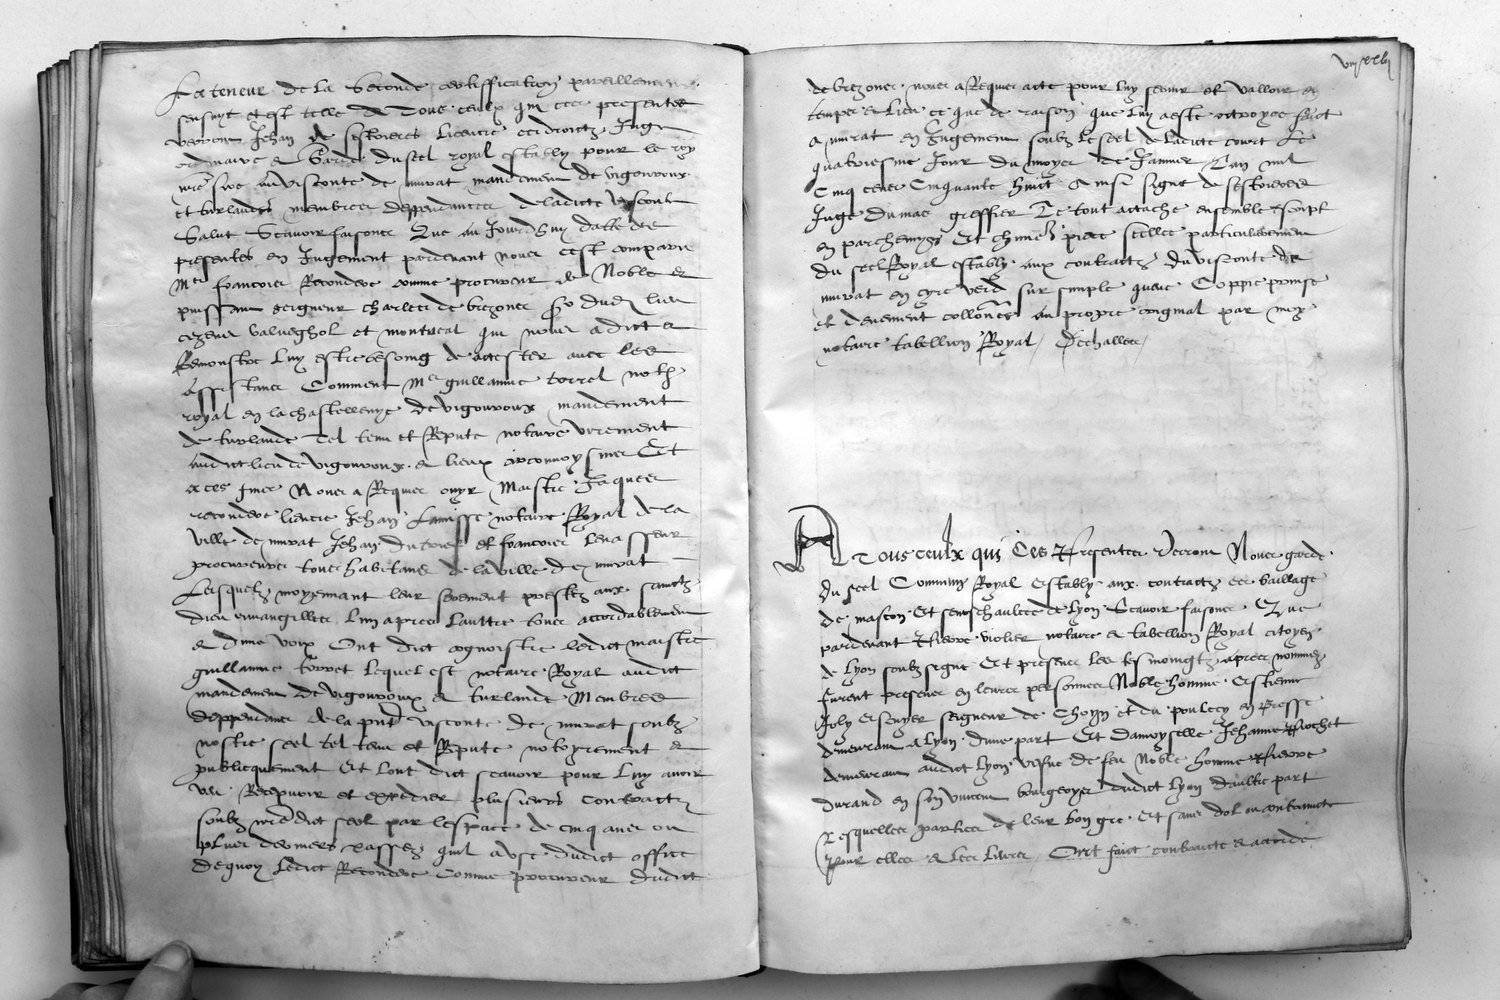 La teneur de la seconde certiffication pareillement
sensuyt et est telle A Tous ceulx qui ces presentes
verront Jehan de sestrieres licencie es droictz Juge
ordinaire et Garde du seel royal estably pour le roy
nre sire au visconte de murat mandement de vigouroux
et turlande membres deppendances de ladicte viscomte
Salut Scavoir faisons Que au Jourdhuy datte des
presentes en Jugement pardevant nous cest comparu
Me francois Recondeve comme procureur de Noble et
puissant seigneur charles de brezons Sr dud lieu
cezens valueghol et montreal qui nous a dict et
Remonstre luy estre besoing de attester avec les
assistans Comment Me guillaume torrel not
royal en la chastellenye de vigouroux mandement
de turlande Tel tenu et Repute notaire vrrement
audict lieu de vigouroux et lieux circonvoysins Et
a ces fins Nous a Requier ouyr Maistre Jacques
recondeve licencie Jehan Lanisse notaire Royal de la
ville de murat Jehan et francois levasseur
procureurs tous habitans de la ville de murat
Lesquelz moyennant leur serement prestez aux sainctz
dieu euuangilles lun apres lautre tous accordablement
et dune voix Ont dict cognoistre ledict maistre
guillaume torrel lequel est notaire Royal audict
mandement de vigouroux et turlande Membres
deppendans de la pnt visconte de murat soubz
nostre seel tel tenu et Repute notoyrement et
publicquement Et lont dict scavoir pour luy avoir
veu Recepvoir et expedier plusieurs contractz
soubz nredict seel par lespace de cinq ans ou
plus derniers passez quil a use dudict office
Dequoy ledict Recondeve comme procureur dudict
de brezons nous a Requier acte pour luy servir et valloir en
temps et lieu ce que de raison que luy a este octroyee faict
a murat en Jugement soubz le seel de ladicte court Le
quatriesme Jour du moys de Janvier Lan mil
Cinq cens Cinquante huict Ainsi signe de sestrieres
Juge Dumas greffier Le tout attache ensemble escript
en parchemyn Et chune piece seellee particulierement
du seel Royal estably aux contractz du visconte de
murat en cyre verd sur simple queue Coppie prinse
et deuement collonee au propre original par moy
notaire tabellion Royal Dechalles
A Tous ceulx qui Ces Presentes Verront Nous garde
du seel Commun Royal Estably aux contractz es bailliage
de mascon Et seneschaulcee de lyon Scavoir faisons Que
pardevant Pierre violier notaire et tabellion Royal citoyen
de lyon soubz signe Et presens les tesmoingtz apres nommez
furent presens en leurs personnes Noble homme Estienne
Joly escuyer seigneur de Choyn et du poulcey en bresse
demeurant a lyon dune part Et damoyselle Jehanne Rochet
demeurant audict lyon vefve de feu Noble homme Pierre
durand en son vivant bourgeoys dudict lyon daultre part
Lesquelles parties de leur bon gre Et sans dol ou contraincte
Pour elles et les leurs Ont faict contracte et accorde